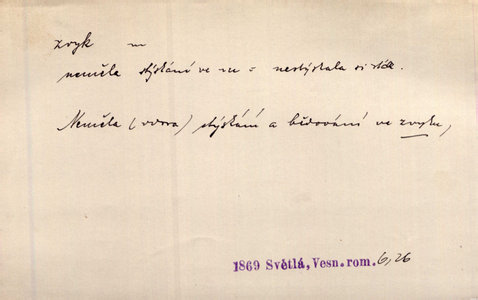 zvyk m
neměla stýskání ve zv = nestýskala si stále.
Neměla (vdova) stýskání a bědování ve zvyku,
1869 Světlá, Vesn. rom. 6,26